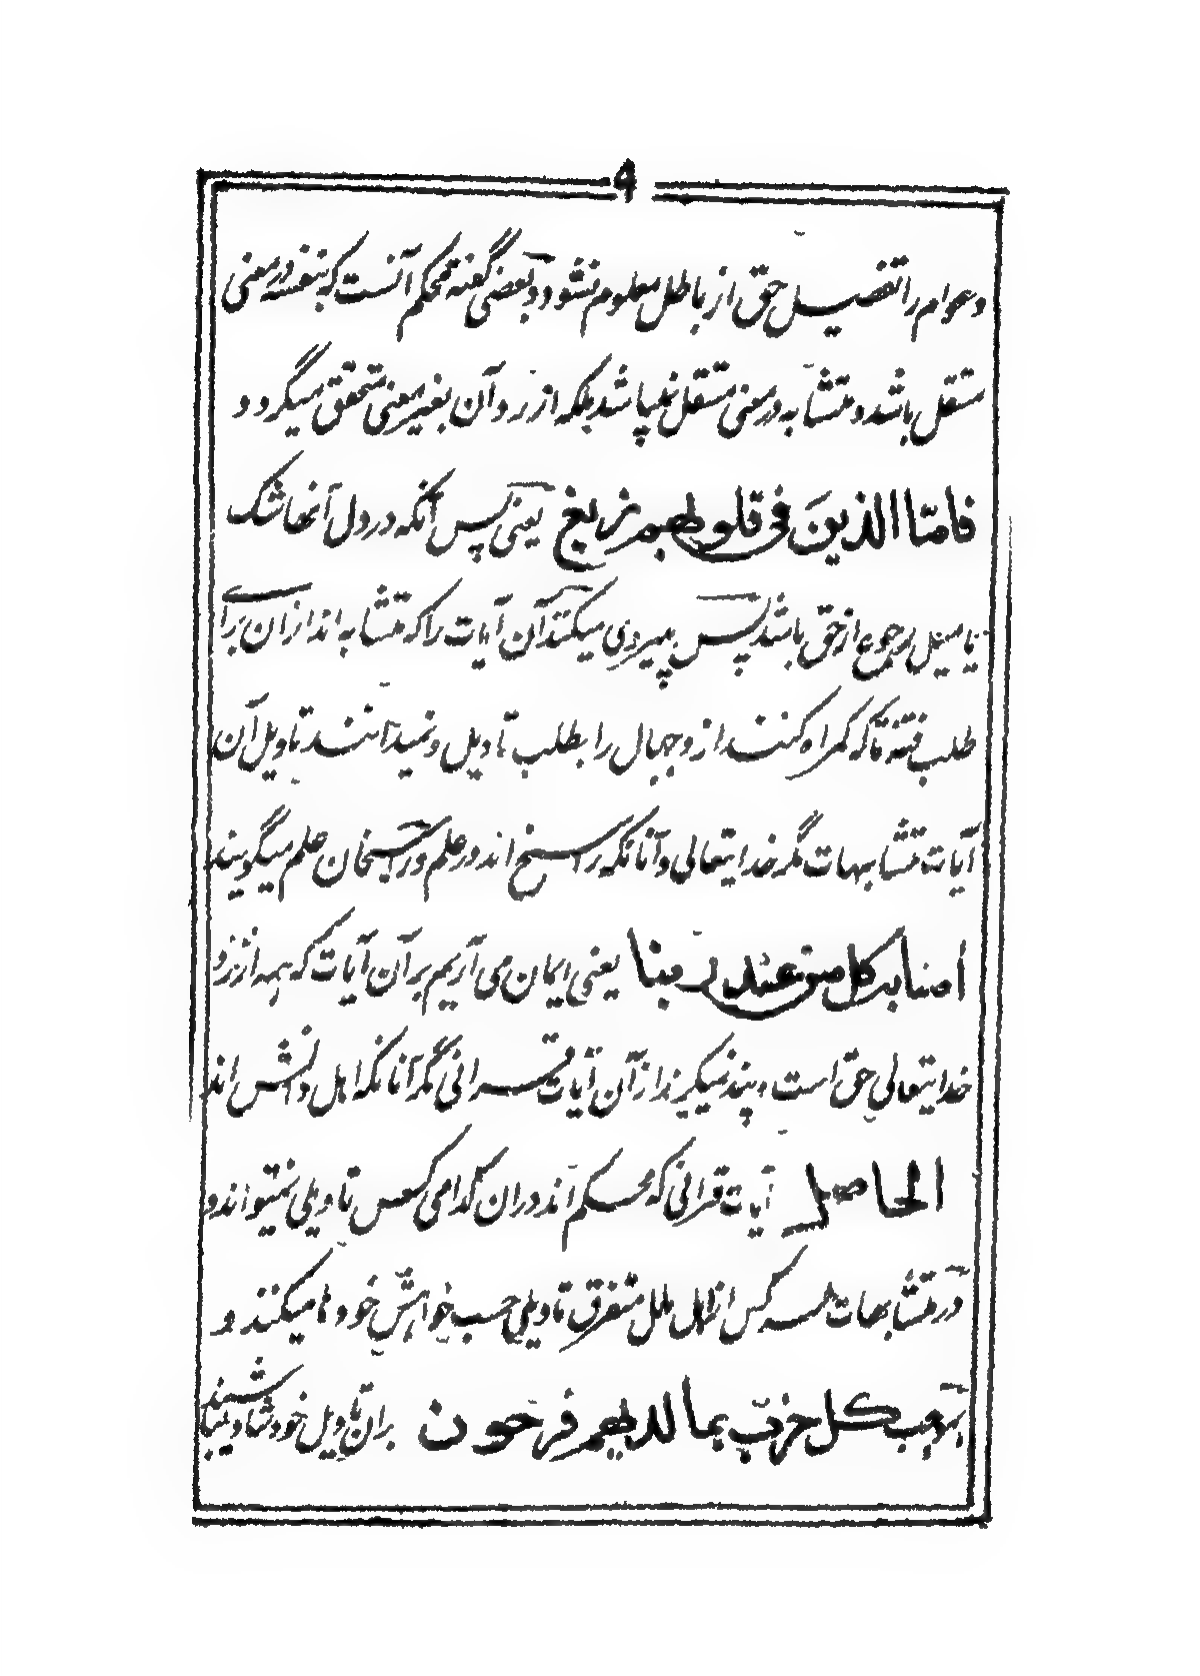 ۹
و عوام را تفصیل حق از باطل معلوم نشود و بعضی گفته محکم آنست که بنفسه در معنی
ستقل باشد و متشابه در معنی مستقل نمیباشد بلکه از رد آن بغیر معنی متحقق میگردد
فامّا الذینَ فی قلوبهم زیغ یعنی پس آنکه در دل آنها شک
یا میل رجوع از حق باشد پس پیروی میکنند آن آیات را که متشابه اند از ان برای
طلب فتنه تا که گمراه کنند از و جهال را بطلب تاویل و نمیدانند تاویل آن
آیات متشابهات مگر خدایتعالی و آنانکه راسخ اند در علم و راسخان علم میگویند
اٰمنا به کل من عند ربنا یعنی ایمان می آریم بر آن آیات که همه از نزد
خدایتعالی حق است و پند نمیگیرند از آن آیات قرانی مگر آنانکه اهل دانش اند
الحاصل آیات قرانی که محکم اند دران کدامی کس تاویلی نمیتواند و
در متشابهات همه کس از اهل ملل متفرق تاویلی حسب خواهش خود ها میکنند و
بموجب کل حزب بما لدیهم فرحون بران تاویل خود شاد میباشند